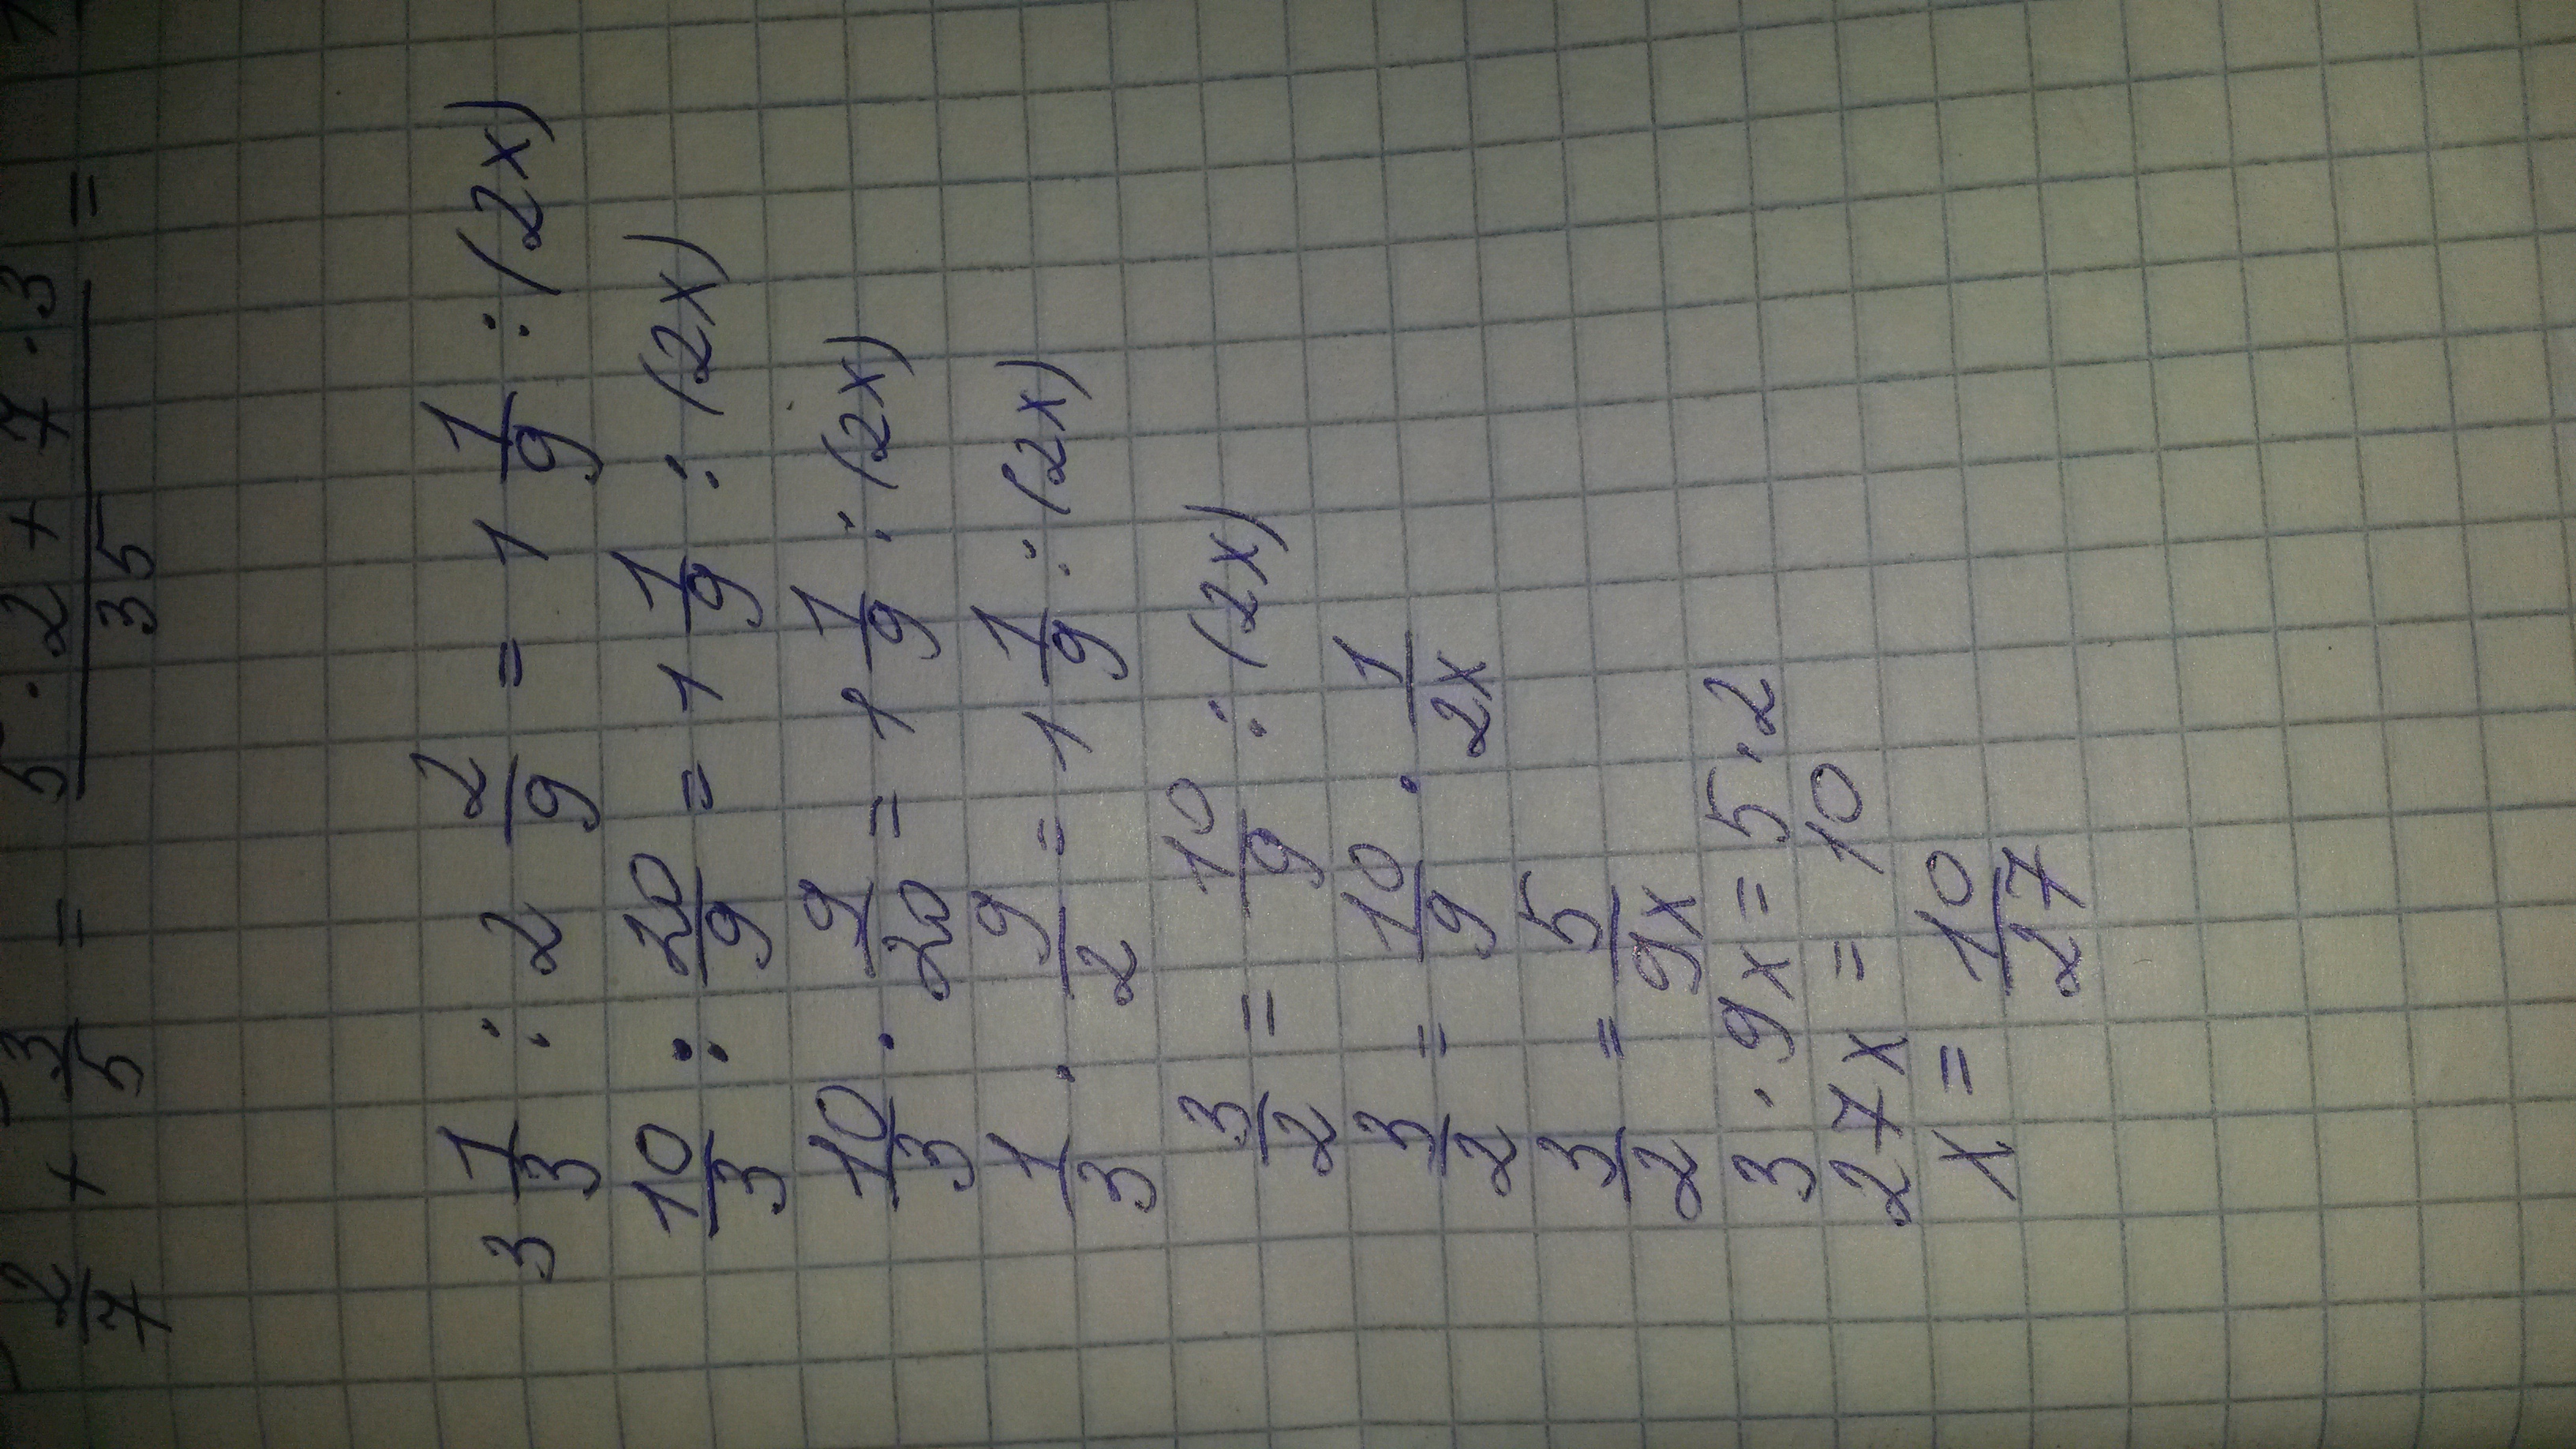 2/7 + 3/5 = (5 · 2 + 7 · 3)/35 =
3 1/3 : 2 2/9 = 1 1/9 : (2x)
10/3 : 20/9 = 1 1/9 : (2x)
10/3 · 9/20 = 1 1/9 : (2x)
1/3 · 9/2 = 1 1/9 : (2x)
3/2 = 10/9 : (2x)
3/2 = 10/9 · 1/2x
3/2 = 5/9x
3 · 9x = 5 · 2
27x = 10
x = 10/27